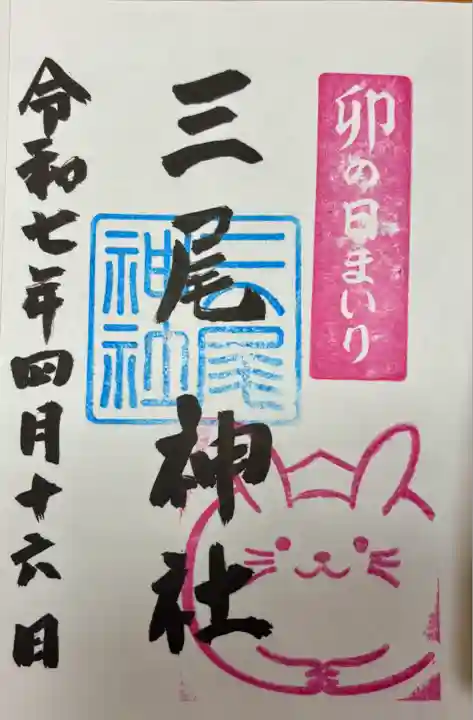 卯の日まいり
三尾神社
三尾神社
令和七年四月十六日